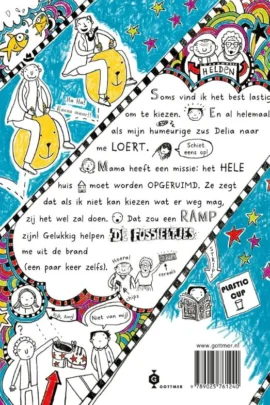 HELDEN
Ha Ha!
Soms vind ik het best lastig
om te kiezen. En al helemaal
als mijn humeurige zus Delia naar
me LOERT.
Schiet
eens op!
Mama heeft een missie: het HELE
huis moet worden OPGERUIMD. Ze zegt
dat als ik niet kan kiezen wat er weg mag,
zij het wel zal doen. Dat zou een RAMP
zijn! Gelukkig helpen DE FOSSIELTJES
me uit de brand
(een paar keer zelfs).
Hoera!
cereals
chips
STRIP
PLASTIC
CUP
Niet van mij!
GOTTMER
www.gottmer.nl
9 789025 761240